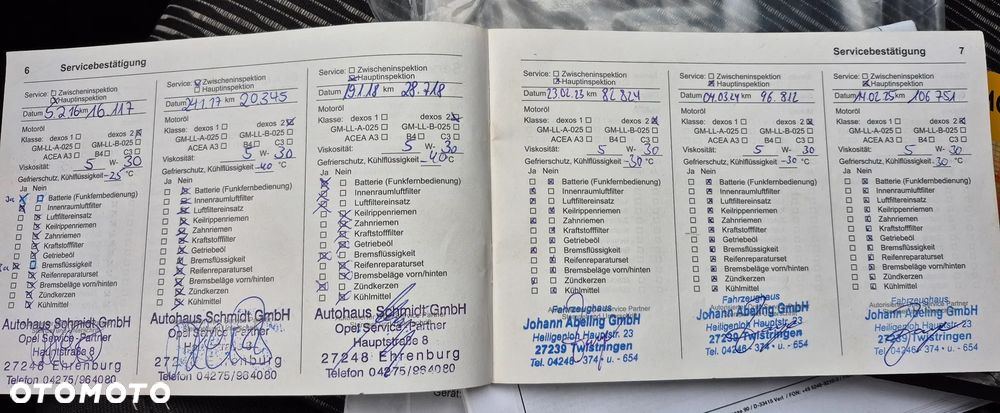 6 Servicebestätigung
Service: Zwischeninspektion
Hauptinspektion
Datum 5.2.16 km 16.117
Motoröl
Klasse: dexos 1 dexos 2
GM-LL-A-025 GM-LL-B-025
ACEA A3 B4 C3
Viskosität: 5 W- 30
Gefrierschutz, Kühlflüssigkeit -25 °C
Ja Nein
Batterie (Funkfernbedienung)
Innenraumluftfilter
Luftfiltereinsatz
Keilrippenriemen
Zahnriemen
Kraftstofffilter
Getriebeöl
Bremsflüssigkeit
Reifenreparaturset
Bremsbeläge vorn/hinten
Zündkerzen
Kühlmittel
Autohaus Schmidt GmbH
Opel Service - Partner
Hauptstraße 8
27248 Ehrenburg
Telefon 04275/964080
Service: Zwischeninspektion
Hauptinspektion
Datum 24.1.17 km 20.345
Motoröl
Klasse: dexos 1 dexos 2
GM-LL-A-025 GM-LL-B-025
ACEA A3 B4 C3
Viskosität: 5 W- 30
Gefrierschutz, Kühlflüssigkeit -40 °C
Ja Nein
Batterie (Funkfernbedienung)
Innenraumluftfilter
Luftfiltereinsatz
Keilrippenriemen
Zahnriemen
Kraftstofffilter
Getriebeöl
Bremsflüssigkeit
Reifenreparaturset
Bremsbeläge vorn/hinten
Zündkerzen
Kühlmittel
Autohaus Schmidt GmbH
Opel Service - Partner
27248 Ehrenburg
Telefon 04275/964080
Service: Zwischeninspektion
Hauptinspektion
Datum 19.1.18 km 28.718
Motoröl
Klasse: dexos 1 dexos 2
GM-LL-A-025 GM-LL-B-025
ACEA A3 B4 C3
Viskosität: 5 W- 30
Gefrierschutz, Kühlflüssigkeit -40 °C
Ja Nein
Batterie (Funkfernbedienung)
Innenraumluftfilter
Luftfiltereinsatz
Keilrippenriemen
Zahnriemen
Kraftstofffilter
Getriebeöl
Bremsflüssigkeit
Reifenreparaturset
Bremsbeläge vorn/hinten
Zündkerzen
Kühlmittel
Autohaus Schmidt GmbH
Opel Service - Partner
Hauptstraße 8
27248 Ehrenburg
Telefon 04275/964080
Servicebestätigung 7
Service: Zwischeninspektion
Hauptinspektion
Datum 23.02.23 km 82 824
Motoröl
Klasse: dexos 1 dexos 2
GM-LL-A-025 GM-LL-B-025
ACEA A3 B4 C3
Viskosität: 5 W- 30
Gefrierschutz, Kühlflüssigkeit -30 °C
Ja Nein
Batterie (Funkfernbedienung)
Innenraumluftfilter
Luftfiltereinsatz
Keilrippenriemen
Zahnriemen
Kraftstofffilter
Getriebeöl
Bremsflüssigkeit
Reifenreparaturset
Bremsbeläge vorn/hinten
Zündkerzen
Kühlmittel
Fahrzeughaus
Johann Abeling GmbH
Heiligenloh Hauptstr. 23
27239 Twistringen
Tel. 04246 - 374 + u. - 654
Service: Zwischeninspektion
Hauptinspektion
Datum 04.03.24 km 96.812
Motoröl
Klasse: dexos 1 dexos 2
GM-LL-A-025 GM-LL-B-025
ACEA A3 B4 C3
Viskosität: 5 W- 30
Gefrierschutz, Kühlflüssigkeit -30 °C
Ja Nein
Batterie (Funkfernbedienung)
Innenraumluftfilter
Luftfiltereinsatz
Keilrippenriemen
Zahnriemen
Kraftstofffilter
Getriebeöl
Bremsflüssigkeit
Reifenreparaturset
Bremsbeläge vorn/hinten
Zündkerzen
Kühlmittel
Fahrzeughaus
Johann Abeling GmbH
Heiligenloh Hauptstr. 23
27239 Twistringen
Tel. 04246 - 374 + u. - 654
Service: Zwischeninspektion
Hauptinspektion
Datum 14.02.25 km 106 751
Motoröl
Klasse: dexos 1 dexos 2
GM-LL-A-025 GM-LL-B-025
ACEA A3 B4 C3
Viskosität: 5 W- 30
Gefrierschutz, Kühlflüssigkeit -30 °C
Ja Nein
Batterie (Funkfernbedienung)
Innenraumluftfilter
Luftfiltereinsatz
Keilrippenriemen
Zahnriemen
Kraftstofffilter
Getriebeöl
Bremsflüssigkeit
Reifenreparaturset
Bremsbeläge vorn/hinten
Zündkerzen
Kühlmittel
Fahrzeughaus
Johann Abeling GmbH
Heiligenloh Hauptstr. 23
27239 Twistringen
Tel. 04246 - 374 + u. - 654
Gerät:
OTOMOTO